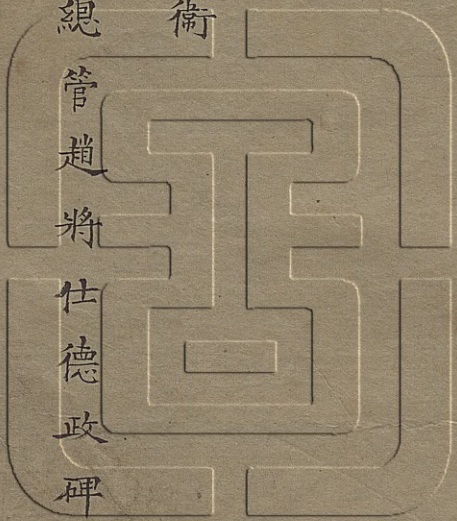 衞
總管趙將仕德政碑